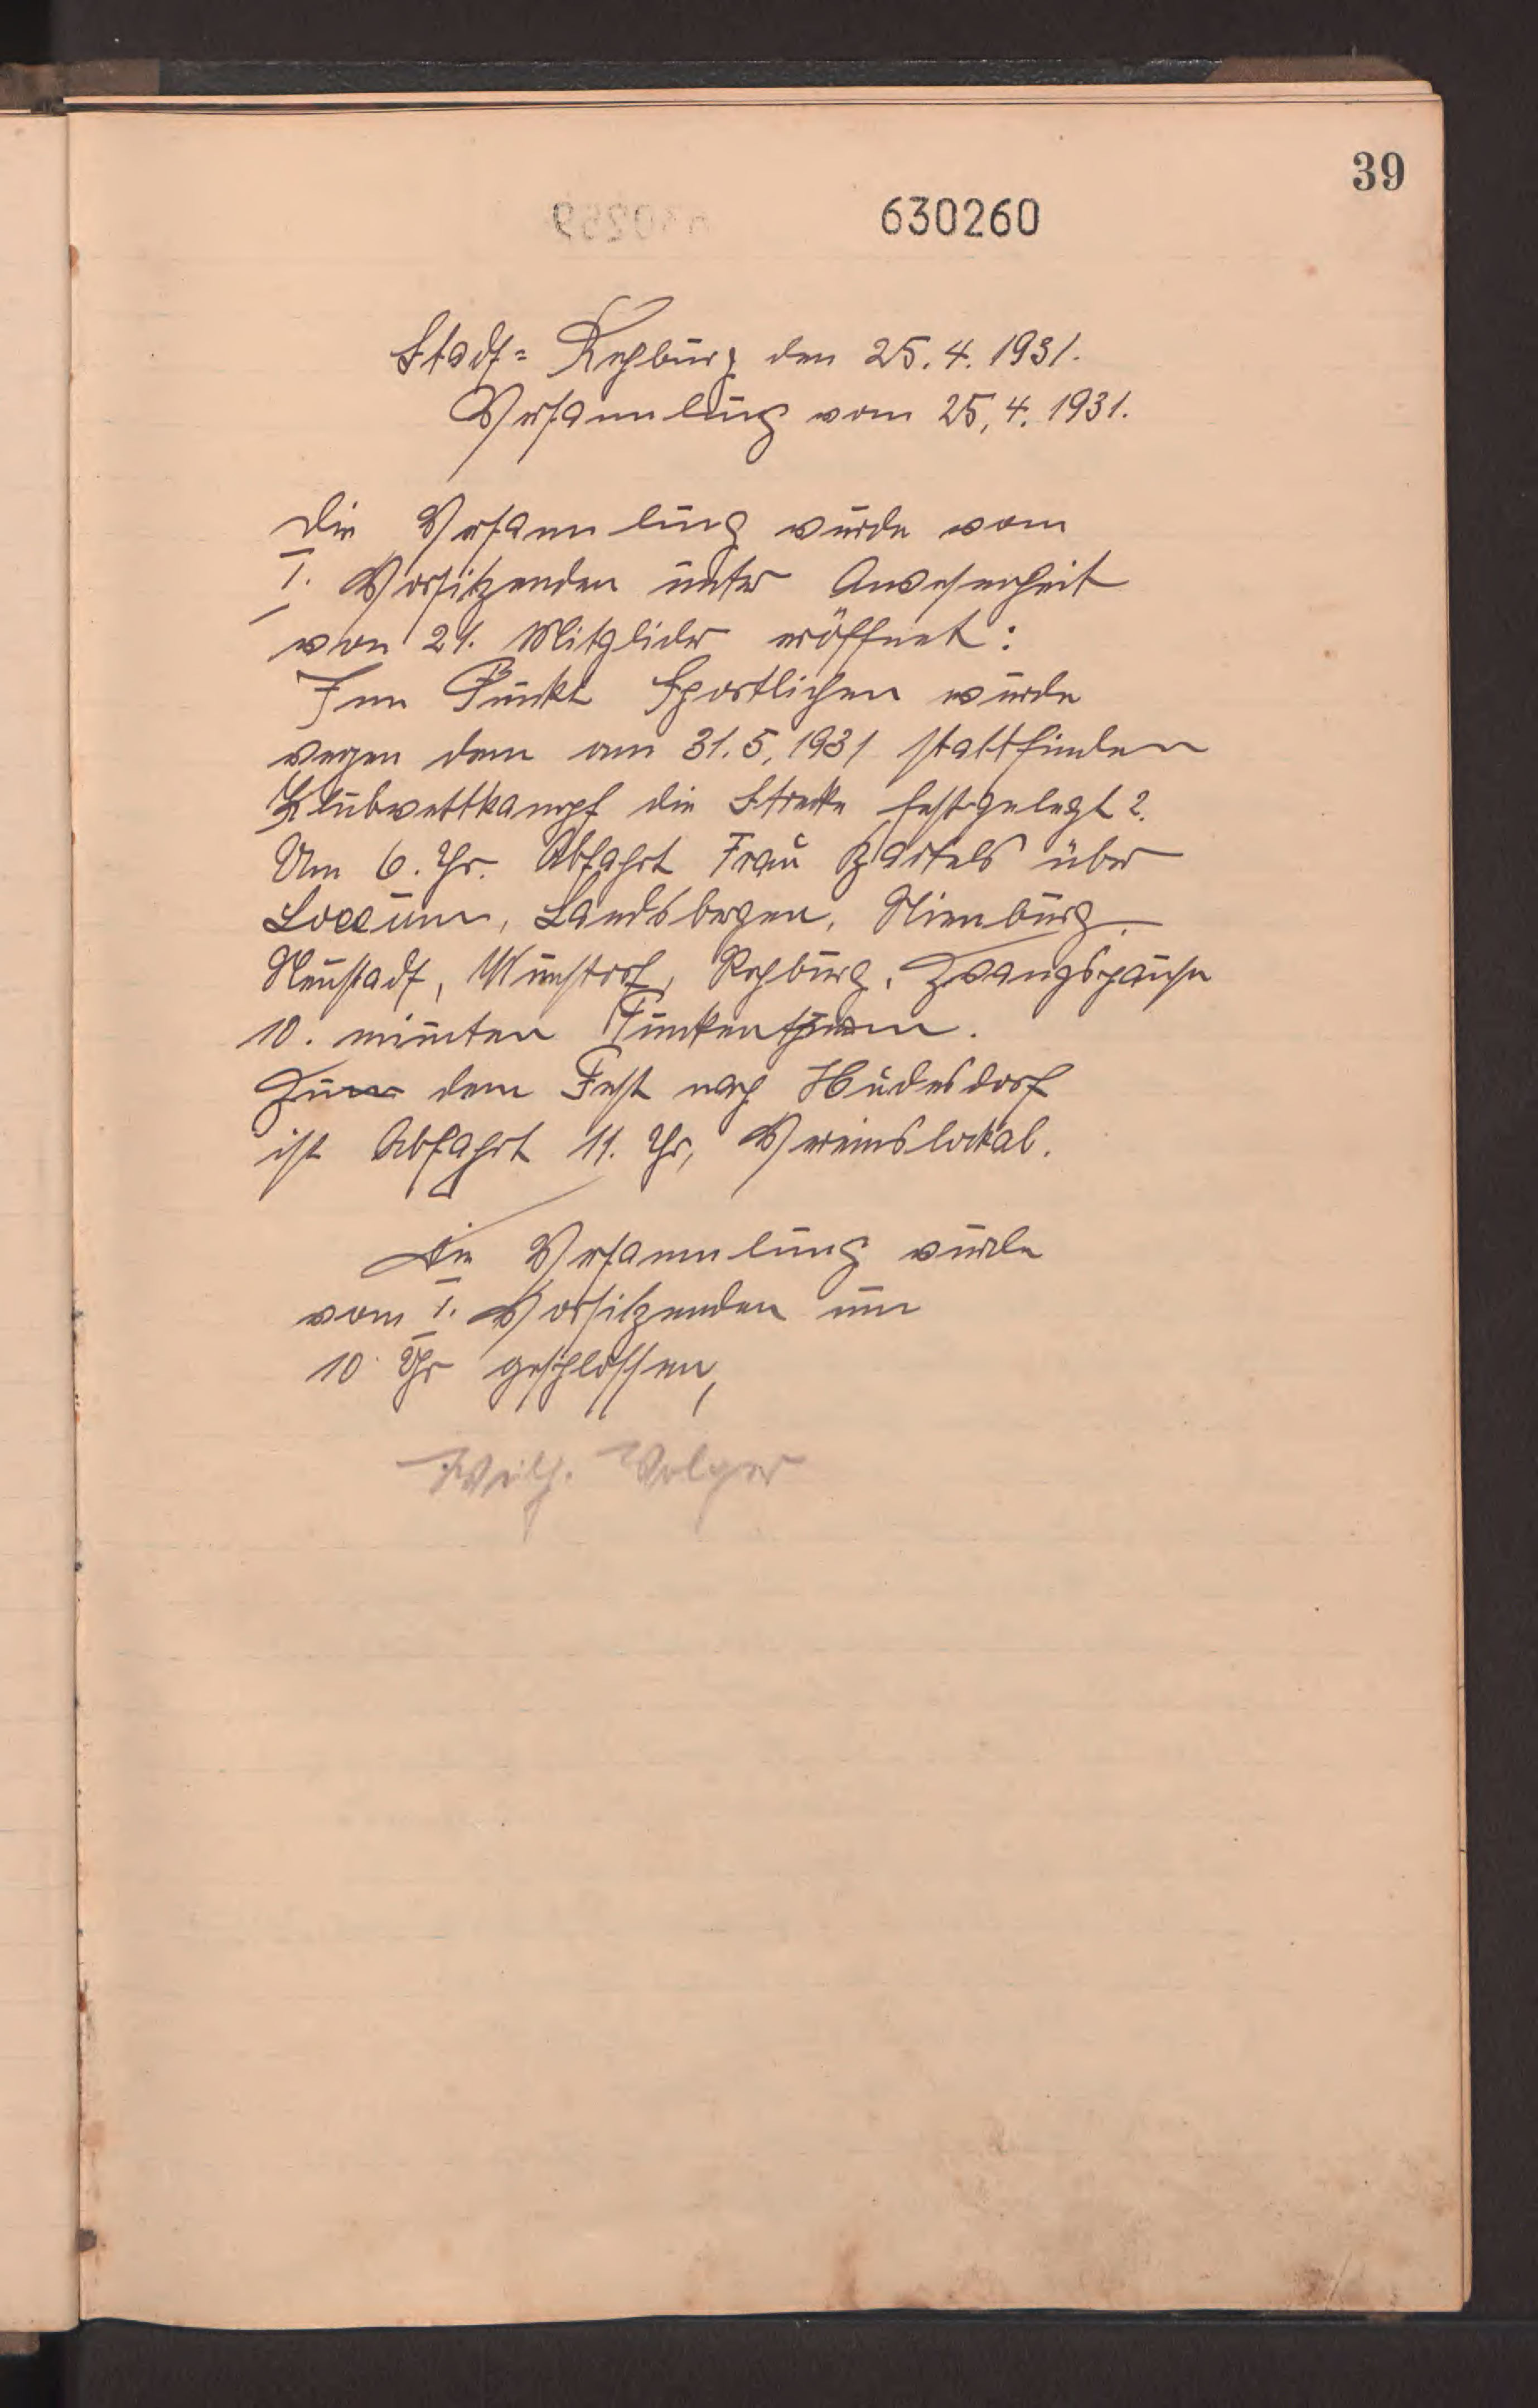 39
630260
Stadt= Rehburg den 25. 4. 1931.
Versammlung vom 25, 4. 1931.
Die Versammlung wurde vom
I. Vorsitzenden unter Anwesenheit
von 21. Mitglider eröffnet:
Im Punkt Sportlichen wurde
wegen dem am 31. 5, 1931 stattfinden
Klubwettkampf die Strecke festgelegt 2.
Um 6. Uhr. Abfahrt Frau Bartels über
Loccum, Landsbergen, Nienburg.
Neustadt, Wunstorf, Rehburg. Zwangspause
10. minuten
dem Fest nach Hüdesdorf
ist Abfahrt 11. Uhr, Vereinslokal.
Die Versammlung wurde
vom I. Vorsitzenden um
10 Uhr geschlossen,
Wilh. Volger